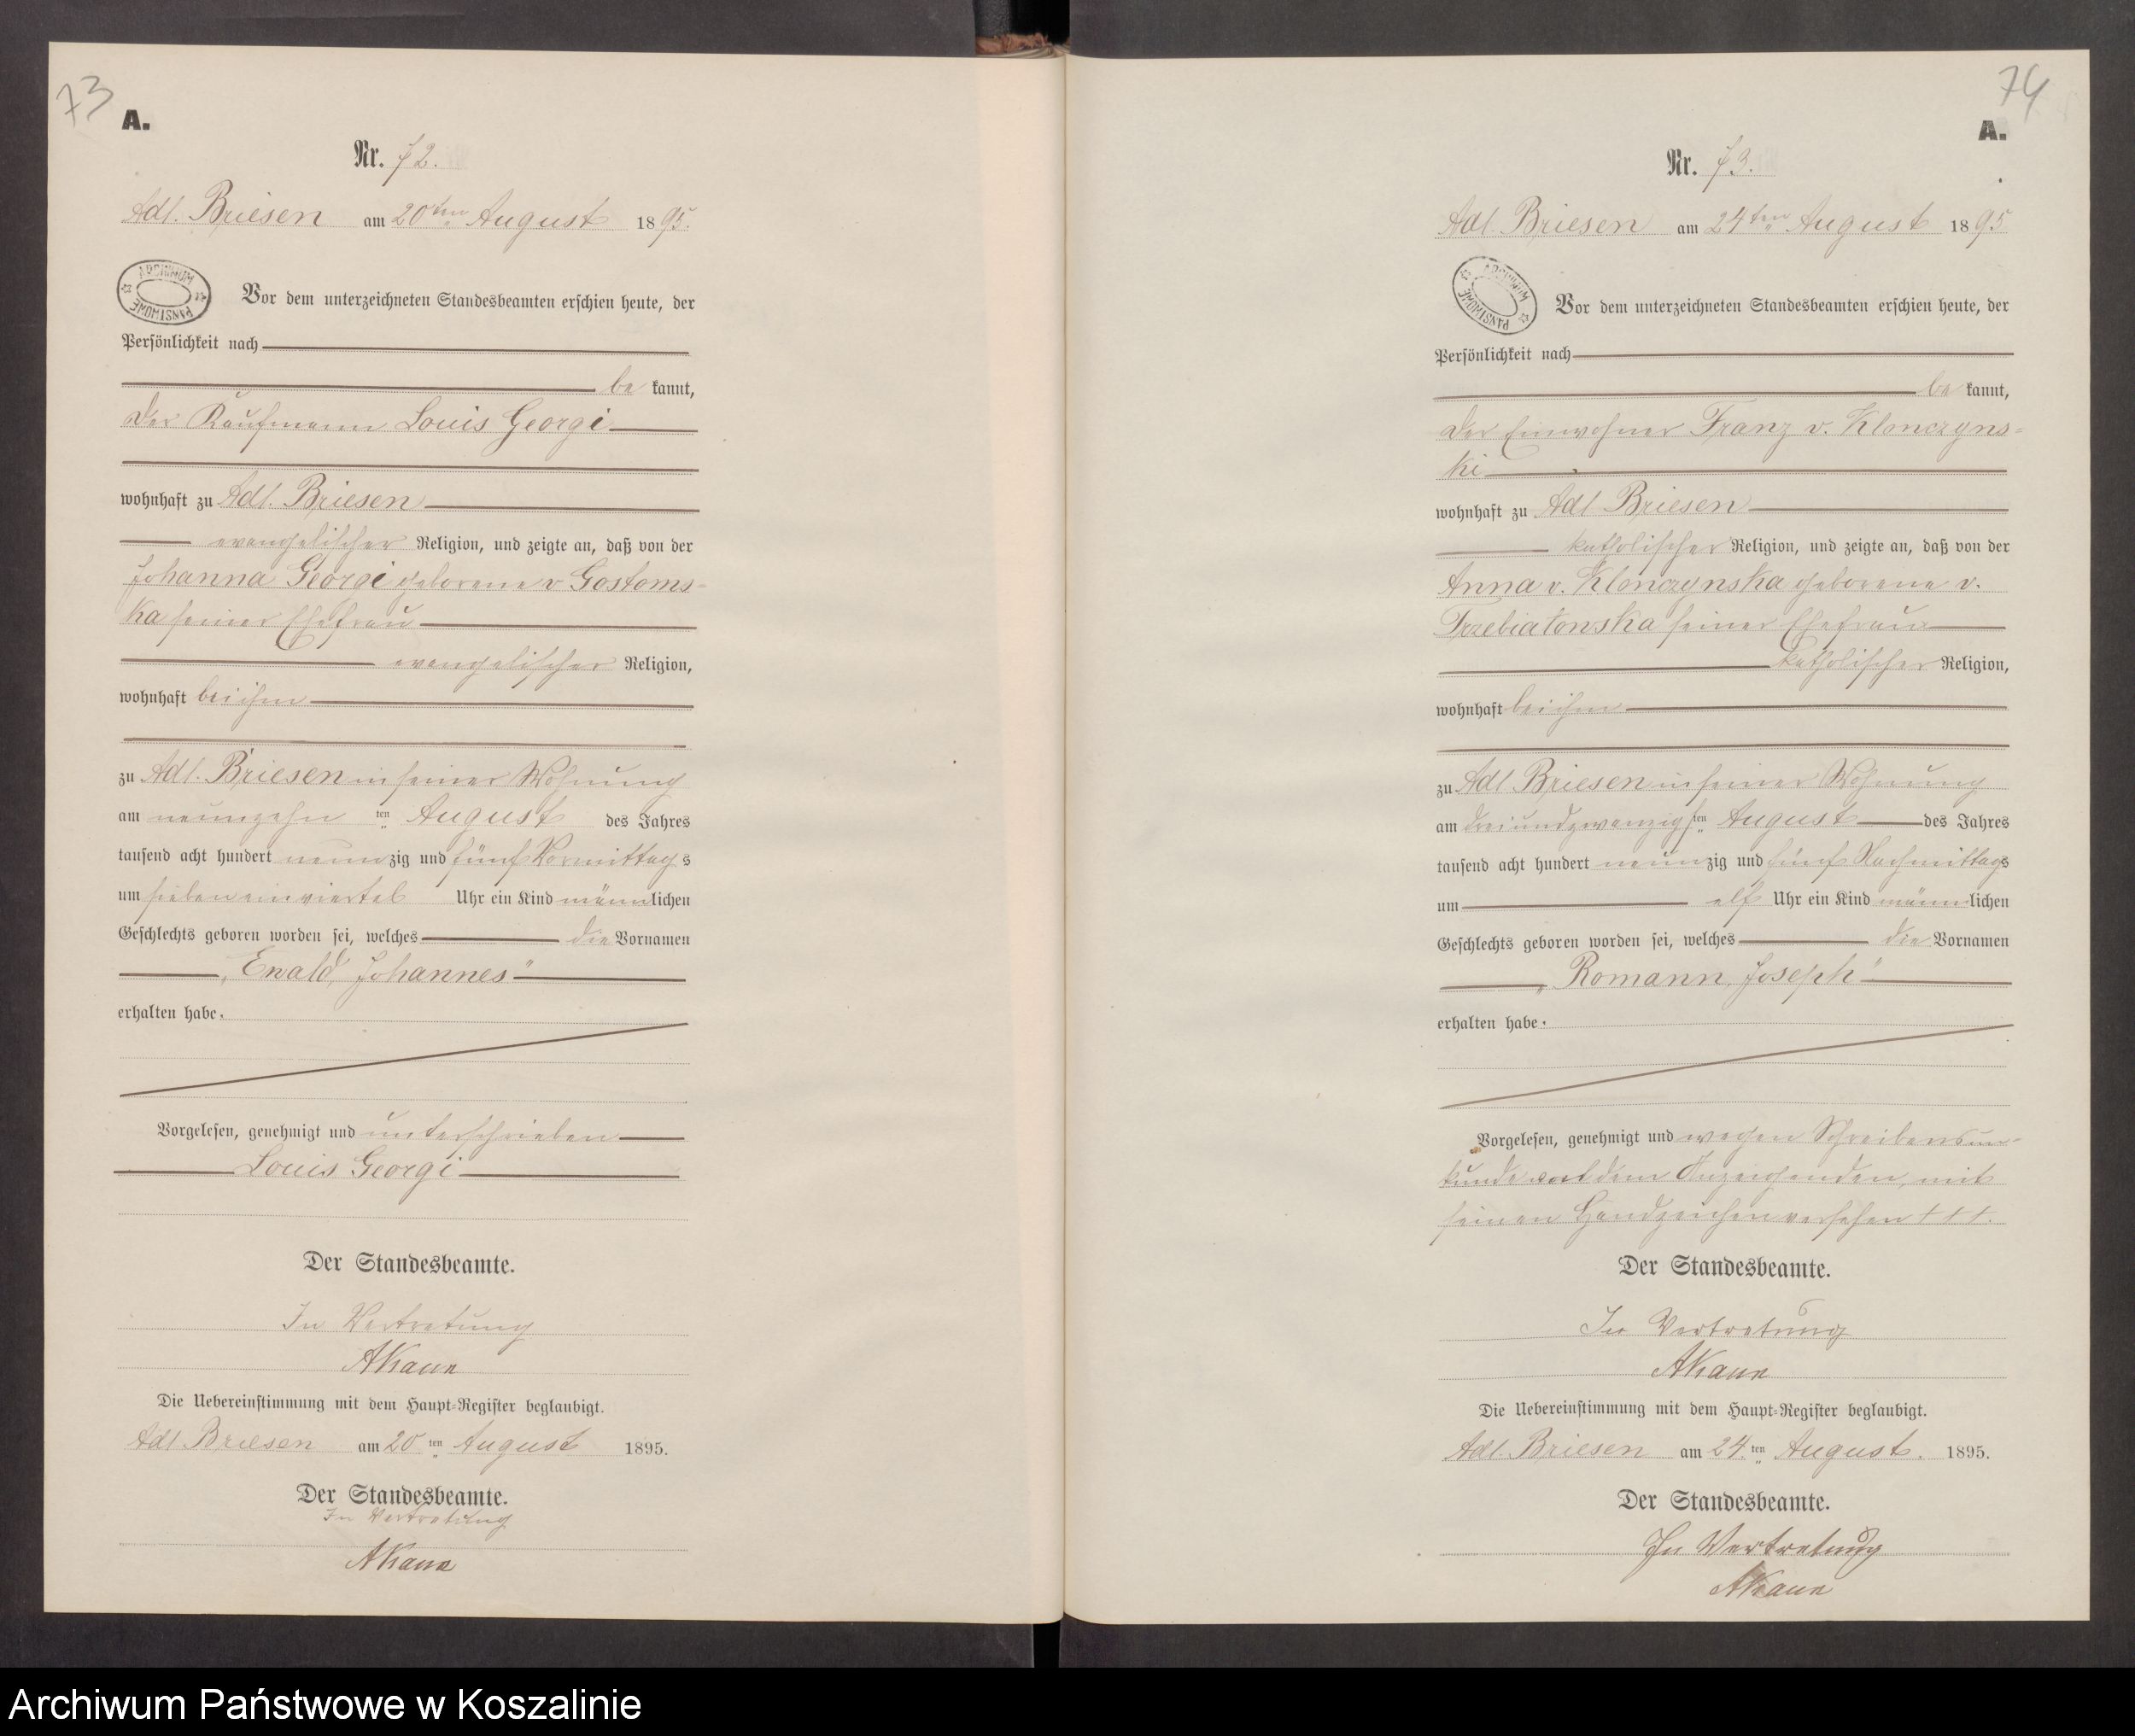 73
A.
Nr. 72.
Adl. Briesen am 20ten August 1895.
ARCHIWUM PAŃSTWOWE
Vor dem unterzeichneten Standesbeamten erschien heute, der
Persönlichkeit nach
be kannt,
der Kaufmann Louis Georgi
wohnhaft zu Adl. Briesen
evangelischer Religion, und zeigte an, daß von der
Johanna Georgi geborene v Gostoms-
ka seiner Ehefrau
evangelischer Religion,
wohnhaft bei ihm
zu Adl. Briesen in seiner Wohnung
am neunzehn ten August des Jahres
tausend acht hundert neunzig und fünf Vormittags
um sieben einviertel Uhr ein Kind männlichen
Geschlechts geboren worden sei, welches die Vornamen
„Ewald, Johannes"
erhalten habe.
Vorgelesen, genehmigt und unterschrieben
Louis Georgi
Der Standesbeamte.
In Vertretung
AKaun
Die Uebereinstimmung mit dem Haupt-Register beglaubigt.
Adl. Briesen am 20 ten August 1895.
Der Standesbeamte.
In Vertretung
AKaun
74
A.
Nr. 73.
Adl. Briesen am 24ten August 1895
ARCHIWUM PAŃSTWOWE
Vor dem unterzeichneten Standesbeamten erschien heute, der
Persönlichkeit nach
be kannt,
der Einwohner Franz v. Klonczyns-
ki
wohnhaft zu Adl Briesen
katholischer Religion, und zeigte an, daß von der
Anna v. Klonczynska geborene v.
Trzebiatonska seiner Ehefrau
katholischer Religion,
wohnhaft bei ihm
zu Adl Briesen in seiner Wohnung
am dreiundzwanzigsten August des Jahres
tausend acht hundert neunzig und fünf Nachmittags
um elf Uhr ein Kind männlichen
Geschlechts geboren worden sei, welches die Vornamen
„Romann, Joseph"
erhalten habe.
Vorgelesen, genehmigt und wegen Schreibensun-
kunde von dem Anzeigenden, mit
seinen Handzeichen versehen †††.
Der Standesbeamte.
In Vertretung
AKaun
Die Uebereinstimmung mit dem Haupt-Register beglaubigt.
Adl. Briesen am 24. ten August. 1895.
Der Standesbeamte.
In Vertretung
AKaun
Archiwum Państwowe w Koszalinie